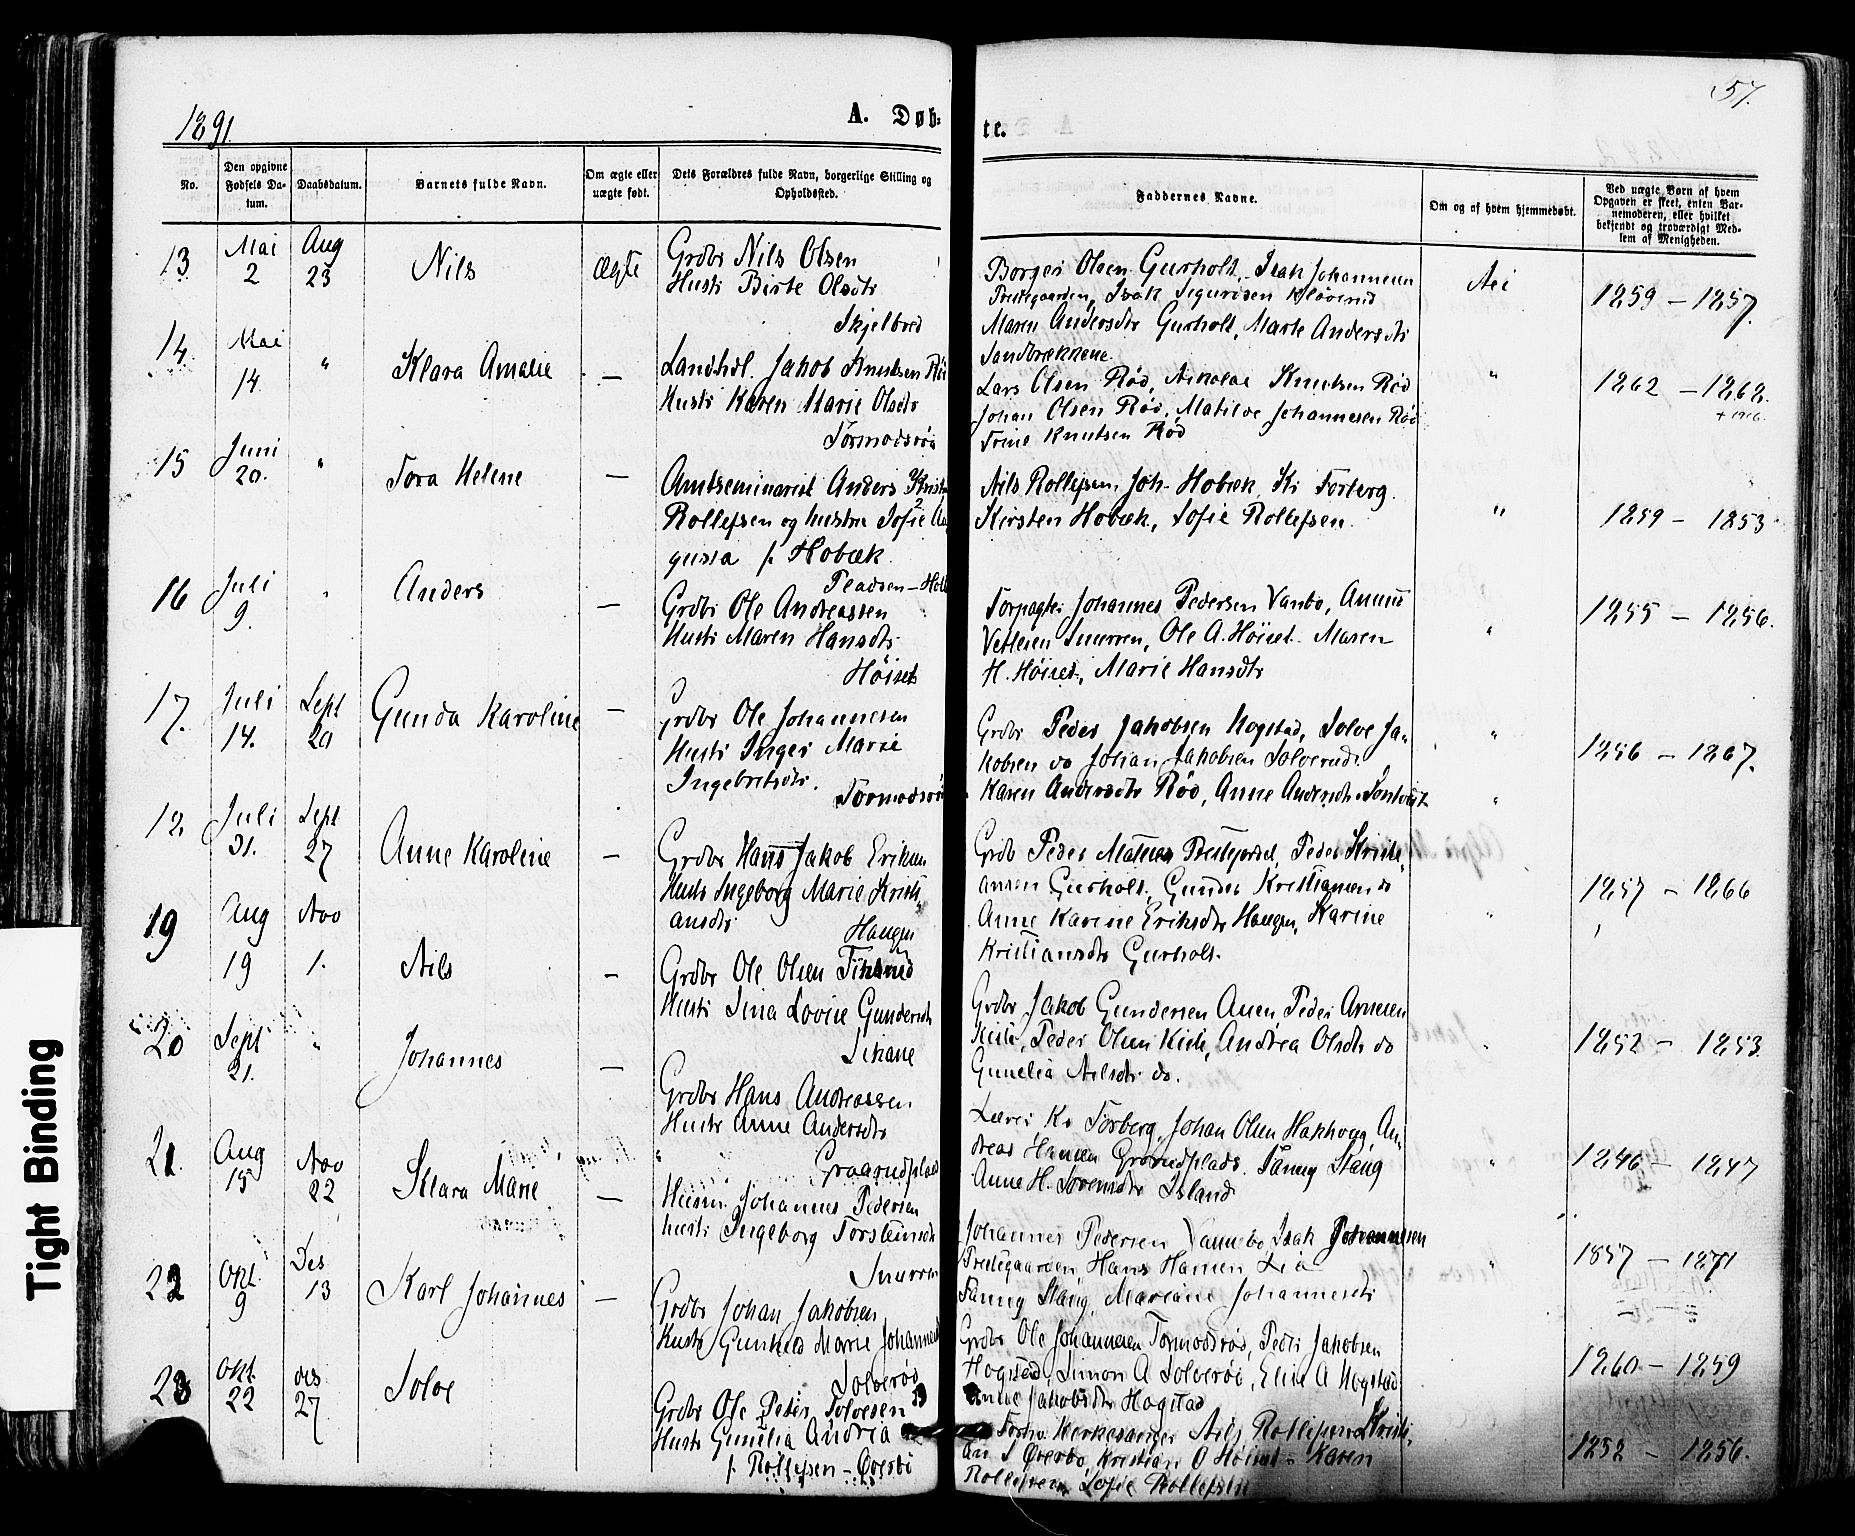 1891
A. Døb-
te.
57.
No.
Den opgivne Fødsels Da-tum.
Daabsdatum.
Barnets fulde Navn.
Om ægte eller uægte født.
Dets Forældres fulde Navn, borgerlige Stilling og Opholdssted.
Faddernes Navne.
Om og af hvem hjemmedøbt.
Ved uægte Børn af hvem Opgaven er skeet, enten Bar-nemoderen, eller hvilket bekjendt og troværdigt Med-lem af Menigheden.
13 Mai 2 Aug 23 Nils ægte
Grdbr Nils Olsen
Hustr Birte Olsdtr
Skjelbred
Borger Olsen Gurholt, Isak Johannesen
Prestegaarden, Isak Sigurdsen
Maren Andersdtr Gurholt, Marte Andersdtr
Sandbrækkene
Nei
1859 - 1857.
14. Mai 14. " Klara Amalie —
Landhdl. Jakob Knudsen Rød
Hustr Karen Marie Olsdtr
Tormodsrød
Lars Olsen Rød, Nikolai Knutsen Rød
Johan Olsen Rød, Matilde Johannesen Rød
Trine Knutsen Rød
"
1862 - 1862.
+ 1916
15 Juni 20. " Tora Helene —
Amtseminarist Anders
Rollefsen og hustru Sofie Au
gusta f. Hobæk
Pladsen -
Nils Rollefsen, Joh. Hobæk, Kr Forberg.
Kirsten Hobæk, Sofie Rollefsen.
"
1859 - 1853
16 Juli 9. " Anders —
Grdbr Ole Andreassen
Hustr Maren Hansdtr
Høiset
Forpagter Johannes Pedersen Vanbo,
Vetlesen Snurren, Ole A. Høiset. Maren
H. Høiset, Marie Hansdtr
"
1855 - 1856.
17. Juli 14. Sept 20 Gunda Karoline —
Grdbr Ole Johannesen
Hustr Inger Marie
Ingebretsdtr.
Tormodsrød
Grdbr Peder Jakobsen Hogstad, Solve Ja-
kobsen do Johan Jakobsen Solverud.
Karen Andersdtr Rød, Anne Andersdtr
"
1856 - 1867.
18. Juli 31. Sept 27 Anne Karoline —
Grdbr Hans Jakob Eriksen
Hustr Ingeborg Marie Kristi
ansdtr
Haugen
Grdb Peder Prestegjordet, Peder Kristi-
ansen Gurholt, Gunder Kristiansen do
Anne Karine Eriksdtr Haugen, Karine
Kristiansdtr Gurholt.
"
1857 - 1866
19 Aug 19 Nov 1. Nils —
Grdbr Ole Olsen
Hustr Sina Lovise Gundersdtr
Sikane
Grdbr Jakob Gundersen Auen Peder Arnesen
Kise, Peder Olsen Kise, Andrea Olsdtr do
Gunelia Nilsdtr do.
"
1852 - 1853
20 Sept 21. " Johannes —
Grdbr Hans Andreassen
Hustr Anne Andersdtr
Graarudplads
Lærer Kr Forberg, Johan Olsen Haxhoug, An-
dreas Hansen Graarudplads. Fanny Stang
Anne H. Sorensdtr Island
"
1846 - 1847
21. Aug 15 Nov 22 Klara Marie —
Husm. Johannes Pedersen
hustr Ingeborg Torsteinsdtr
Snurren
Johannes Pedersen Vannebo Isak Johannesen
Prestegaarden, Hans Hansen Lia
Fanny Stang, Mariane Johannesdtr
"
1857 - 1871
22 Okt. 9 Des 13 Karl Johannes —
Grdbr Johan Jakobsen
Hustr Gunhild Marie Johannesd
Solverød
Grdbr Ole Johannesen Tormodsrød, Peder Jakobsen
Hogstad, Simon A Solverød, Elise A Hogstad
Jakobsdtr Hogstad
1860 - 1859
23 Okt 22 des 27 Solve
Grdbr Ole Peder Solvesen
Hustr Gunelia Andrea
f. Rollefsen - Øverbø
Kirkesanger Nils Rollefsen Kristi-
an S Øverbø, Kristian O Høiset - Karen
Rollefsen, Sofie Rollefsen
1852 - 1856.
Tight Binding